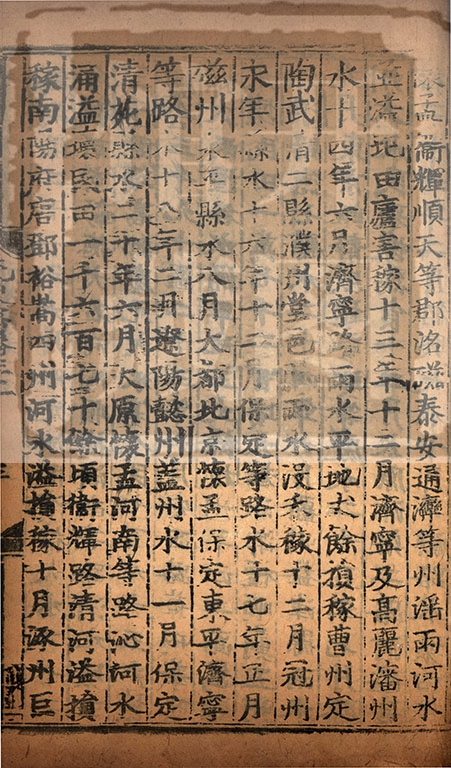 懷孟衞輝順天等郡洺磁泰安通灤等州滛雨河水
並溢圮田廬害稼十三年十二月濟寧及高麗瀋州
水十四年六月濟寧路雨水平地丈餘損稼曹州定
陶武清二縣濮州堂邑縣雨水沒禾稼十二月冠州
永年縣水十六年十二月保定等路水十七年正月
磁州永平縣水八月大都北京懷孟保定東平濟寧
等路水十八年二月遼陽懿州蓋州水十一月保定
清苑縣水二十年六月太原懷孟河南等路沁河水
涌溢壞民田一千六百七十餘頃衛輝路清河溢損
稼南陽府唐鄧裕嵩四州河水溢損稼十月涿州巨